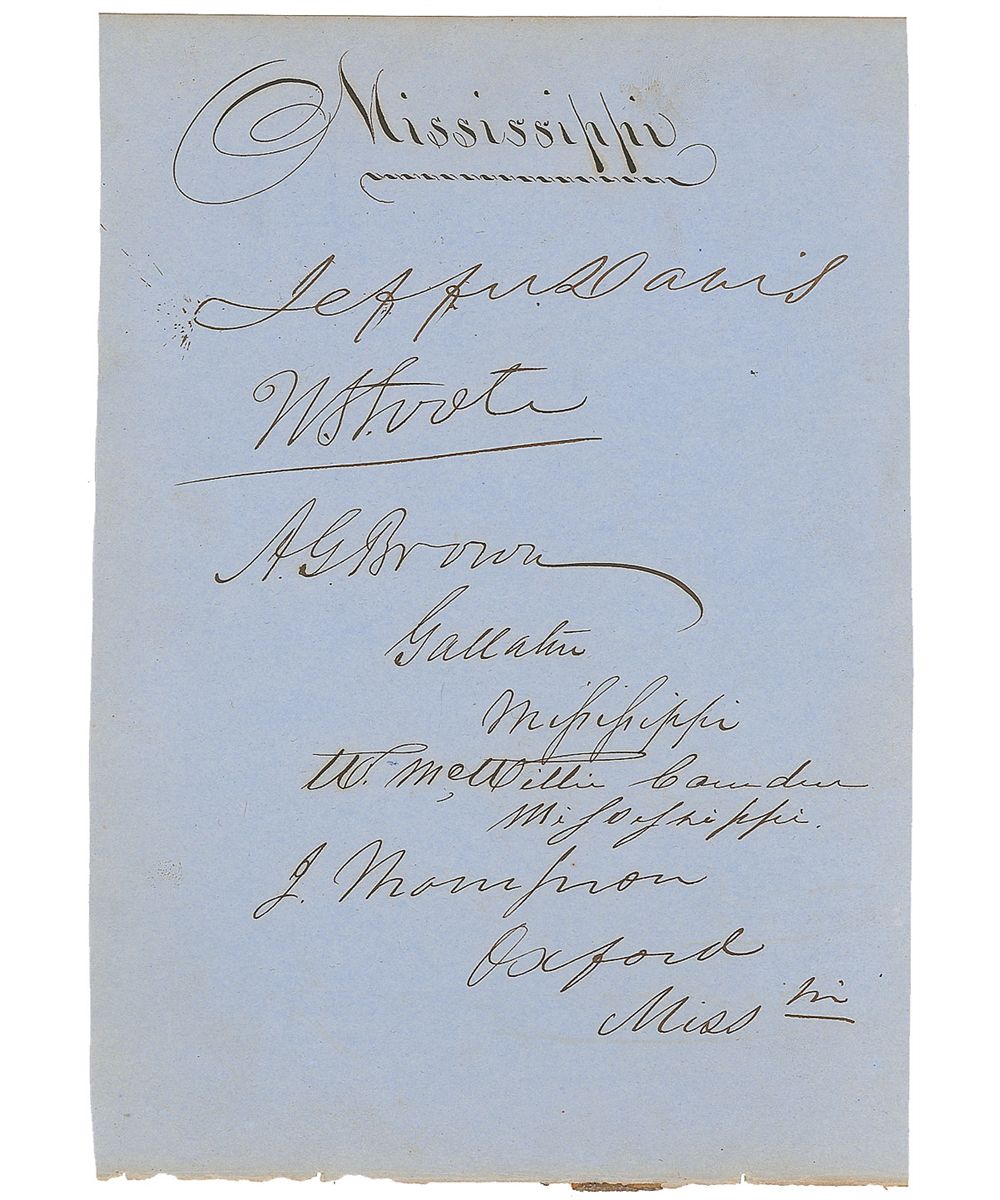 Mississippi
Jeffn. Davis
H S. Foote
A. G. Brown
Gallatin
Mississippi
W. McWillie Camden
Mississippi.
J. Thompson
Oxford
Miss pi